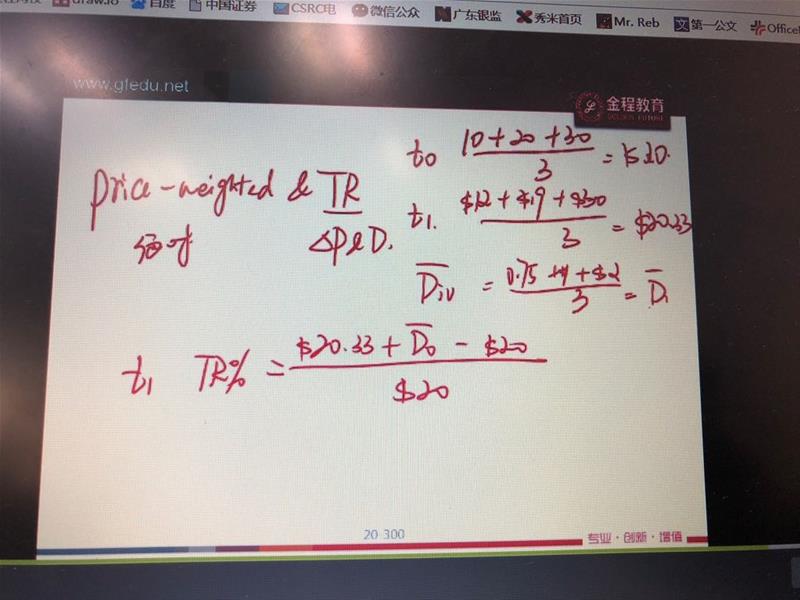 draw.io 百度 中国证券 CSRC电 微信公众 广东银监 秀米首页 Mr. Reb 文 第一公文 Office
www.gfedu.net
金程教育
GOLDEN FUTURE
t0 10+20+30 / 3 = $20.
price-weighted & TR
t1. $12+$19+$30 / 3 = $20.33
ΔP&D.
Div = 0.75+1+$2 / 3 = D
t1 TR% = $20.33 + D0 - $20 / $20
20-300
专业·创新·增值